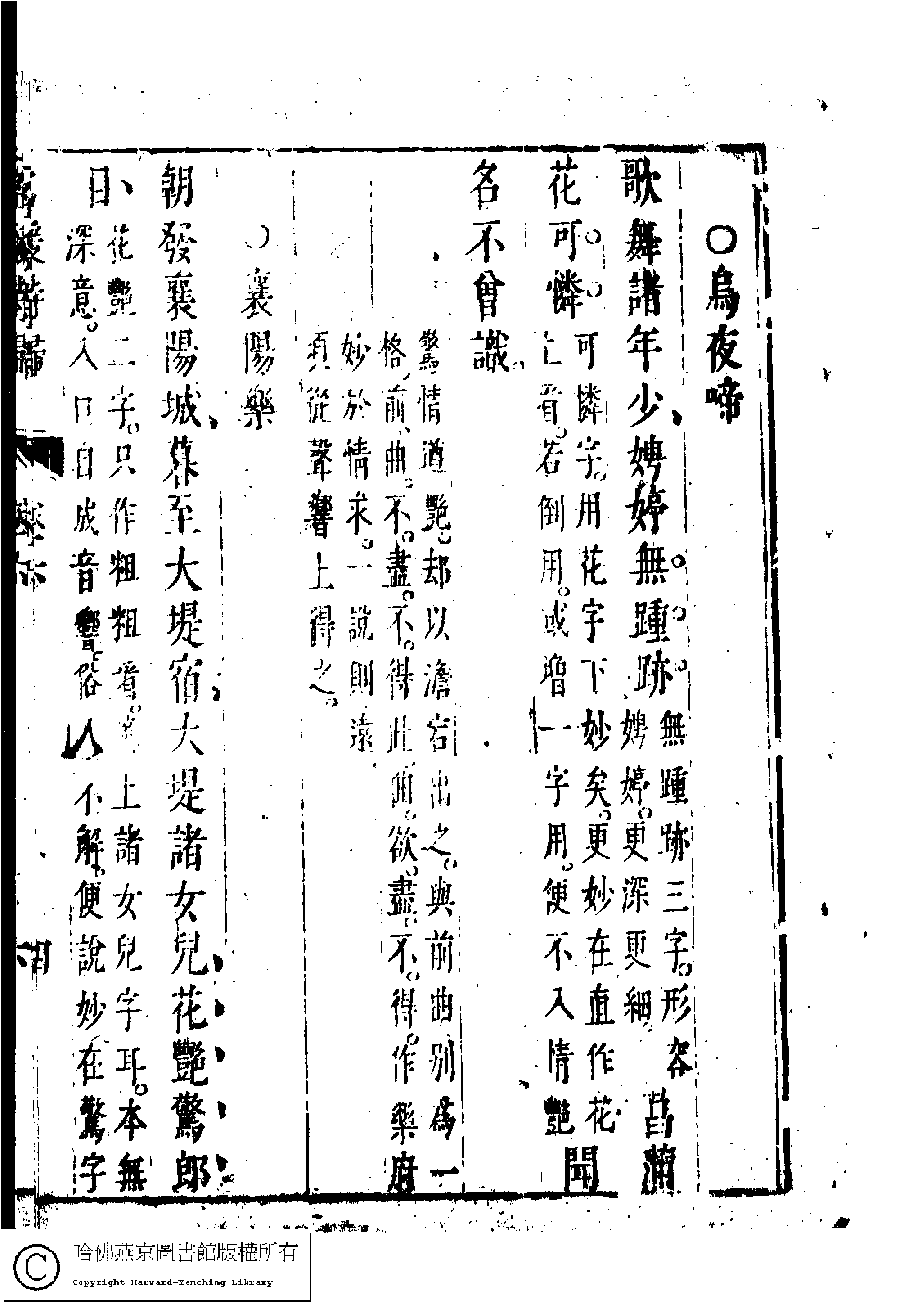 ○烏夜啼
歌舞諸年少娉婷無踵跡
無踵跡三字。形容
娉婷。更深更細。
菖蒲
花可憐
可憐字。用花字下妙矣。更妙在直作花
上看。若倒用。或增一字用。便不入情艷
聞
名不曾識。
情遒艷。却以澹宕出之。與前曲别為一
格。前曲。不盡。不得此曲。欲盡。不得。作樂府
妙於情求。一說則遠
須從聲響上得之。
○襄陽樂
朝發襄陽城暮至大堤宿大堤諸女兒花艷驚郎
目
花艷二字。只作粗粗看。上諸女兒字耳。本無
深意。入口自成音響。俗人不解。便說妙在驚字
哈佛燕京圖書館版權所有
Copyright Harvard-Yenching Library